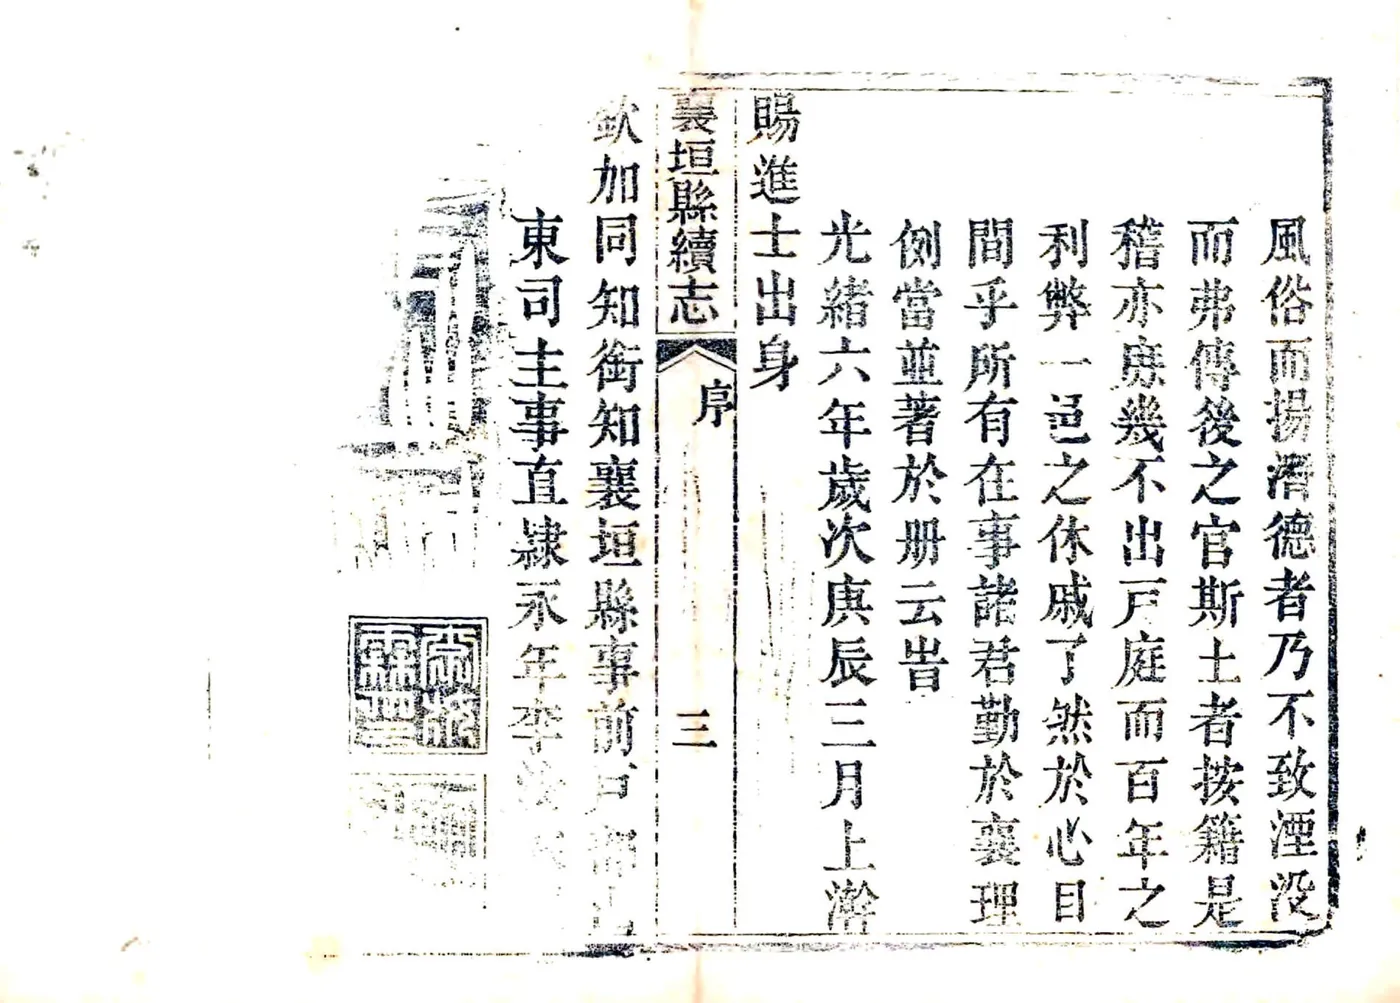 風俗而揚潛德者乃不致湮没
而弗傳後之官斯土者按籍是
稽亦庶幾不出戸庭而百年之
利弊一邑之休戚了然於心目
間乎所有在事諸君勤於襄理
例當並著於册云旹
光緒六年歲次庚辰三月上澣
賜進士出身
襄垣縣續志
序
三
欽加同知銜知襄垣縣事前戸部山
東司主事直隸永年李